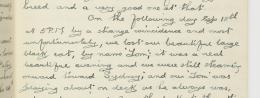 breed and a very good one at that.
On the following day Sep 18th
at 5 P.M. by a strange coincidence and most
unfortunately, we lost our beautiful large
black cat, by name Tom; it was a real
beautiful evening and we were still steaming
onward toward Sydney; and our Tom was
playing about on deck as he always was,